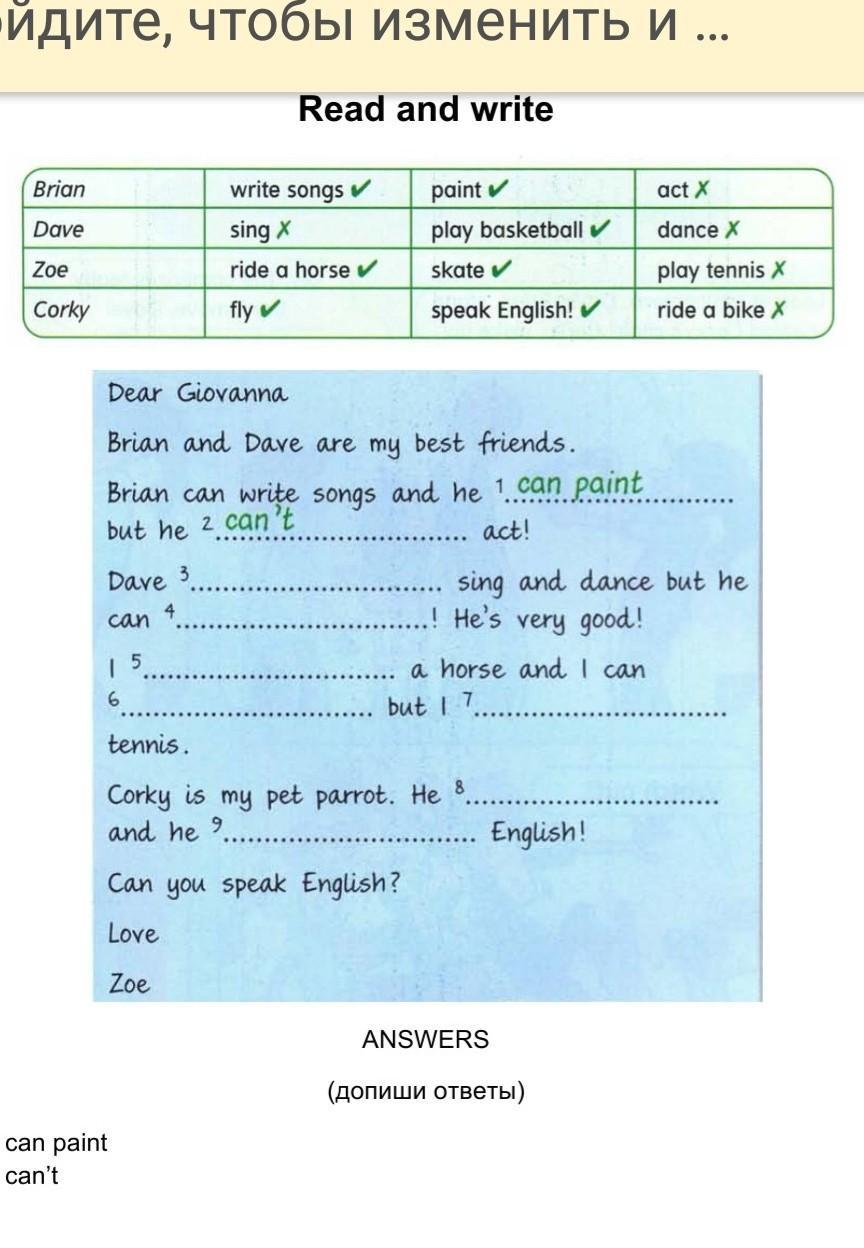 йдите, чтобы изменить и ...
Read and write
Brian write songs ✔ paint ✔ act ✗
Dave sing ✗ play basketball ✔ dance ✗
Zoe ride a horse ✔ skate ✔ play tennis ✗
Corky fly ✔ speak English! ✔ ride a bike ✗
Dear Giovanna
Brian and Dave are my best friends.
Brian can write songs and he 1 can paint
but he 2 can't act!
Dave 3 sing and dance but he
can 4 ! He's very good!
I 5 a horse and I can
6 but I 7
tennis.
Corky is my pet parrot. He 8
and he 9 English!
Can you speak English?
Love
Zoe
ANSWERS
(допиши ответы)
can paint
can't